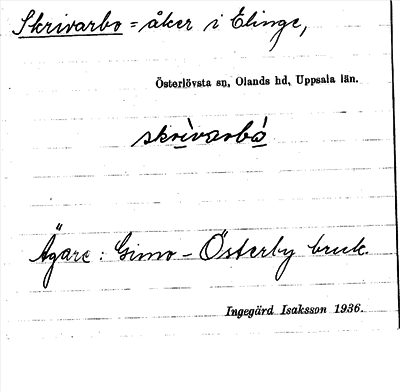 Skrivarbo = åker i Elinge,
Österlövsta sn, Olands hd, Uppsala län.
skrìvarbó
Ägare: Gimo-Österby bruk.
Ingegärd Isaksson 1936.